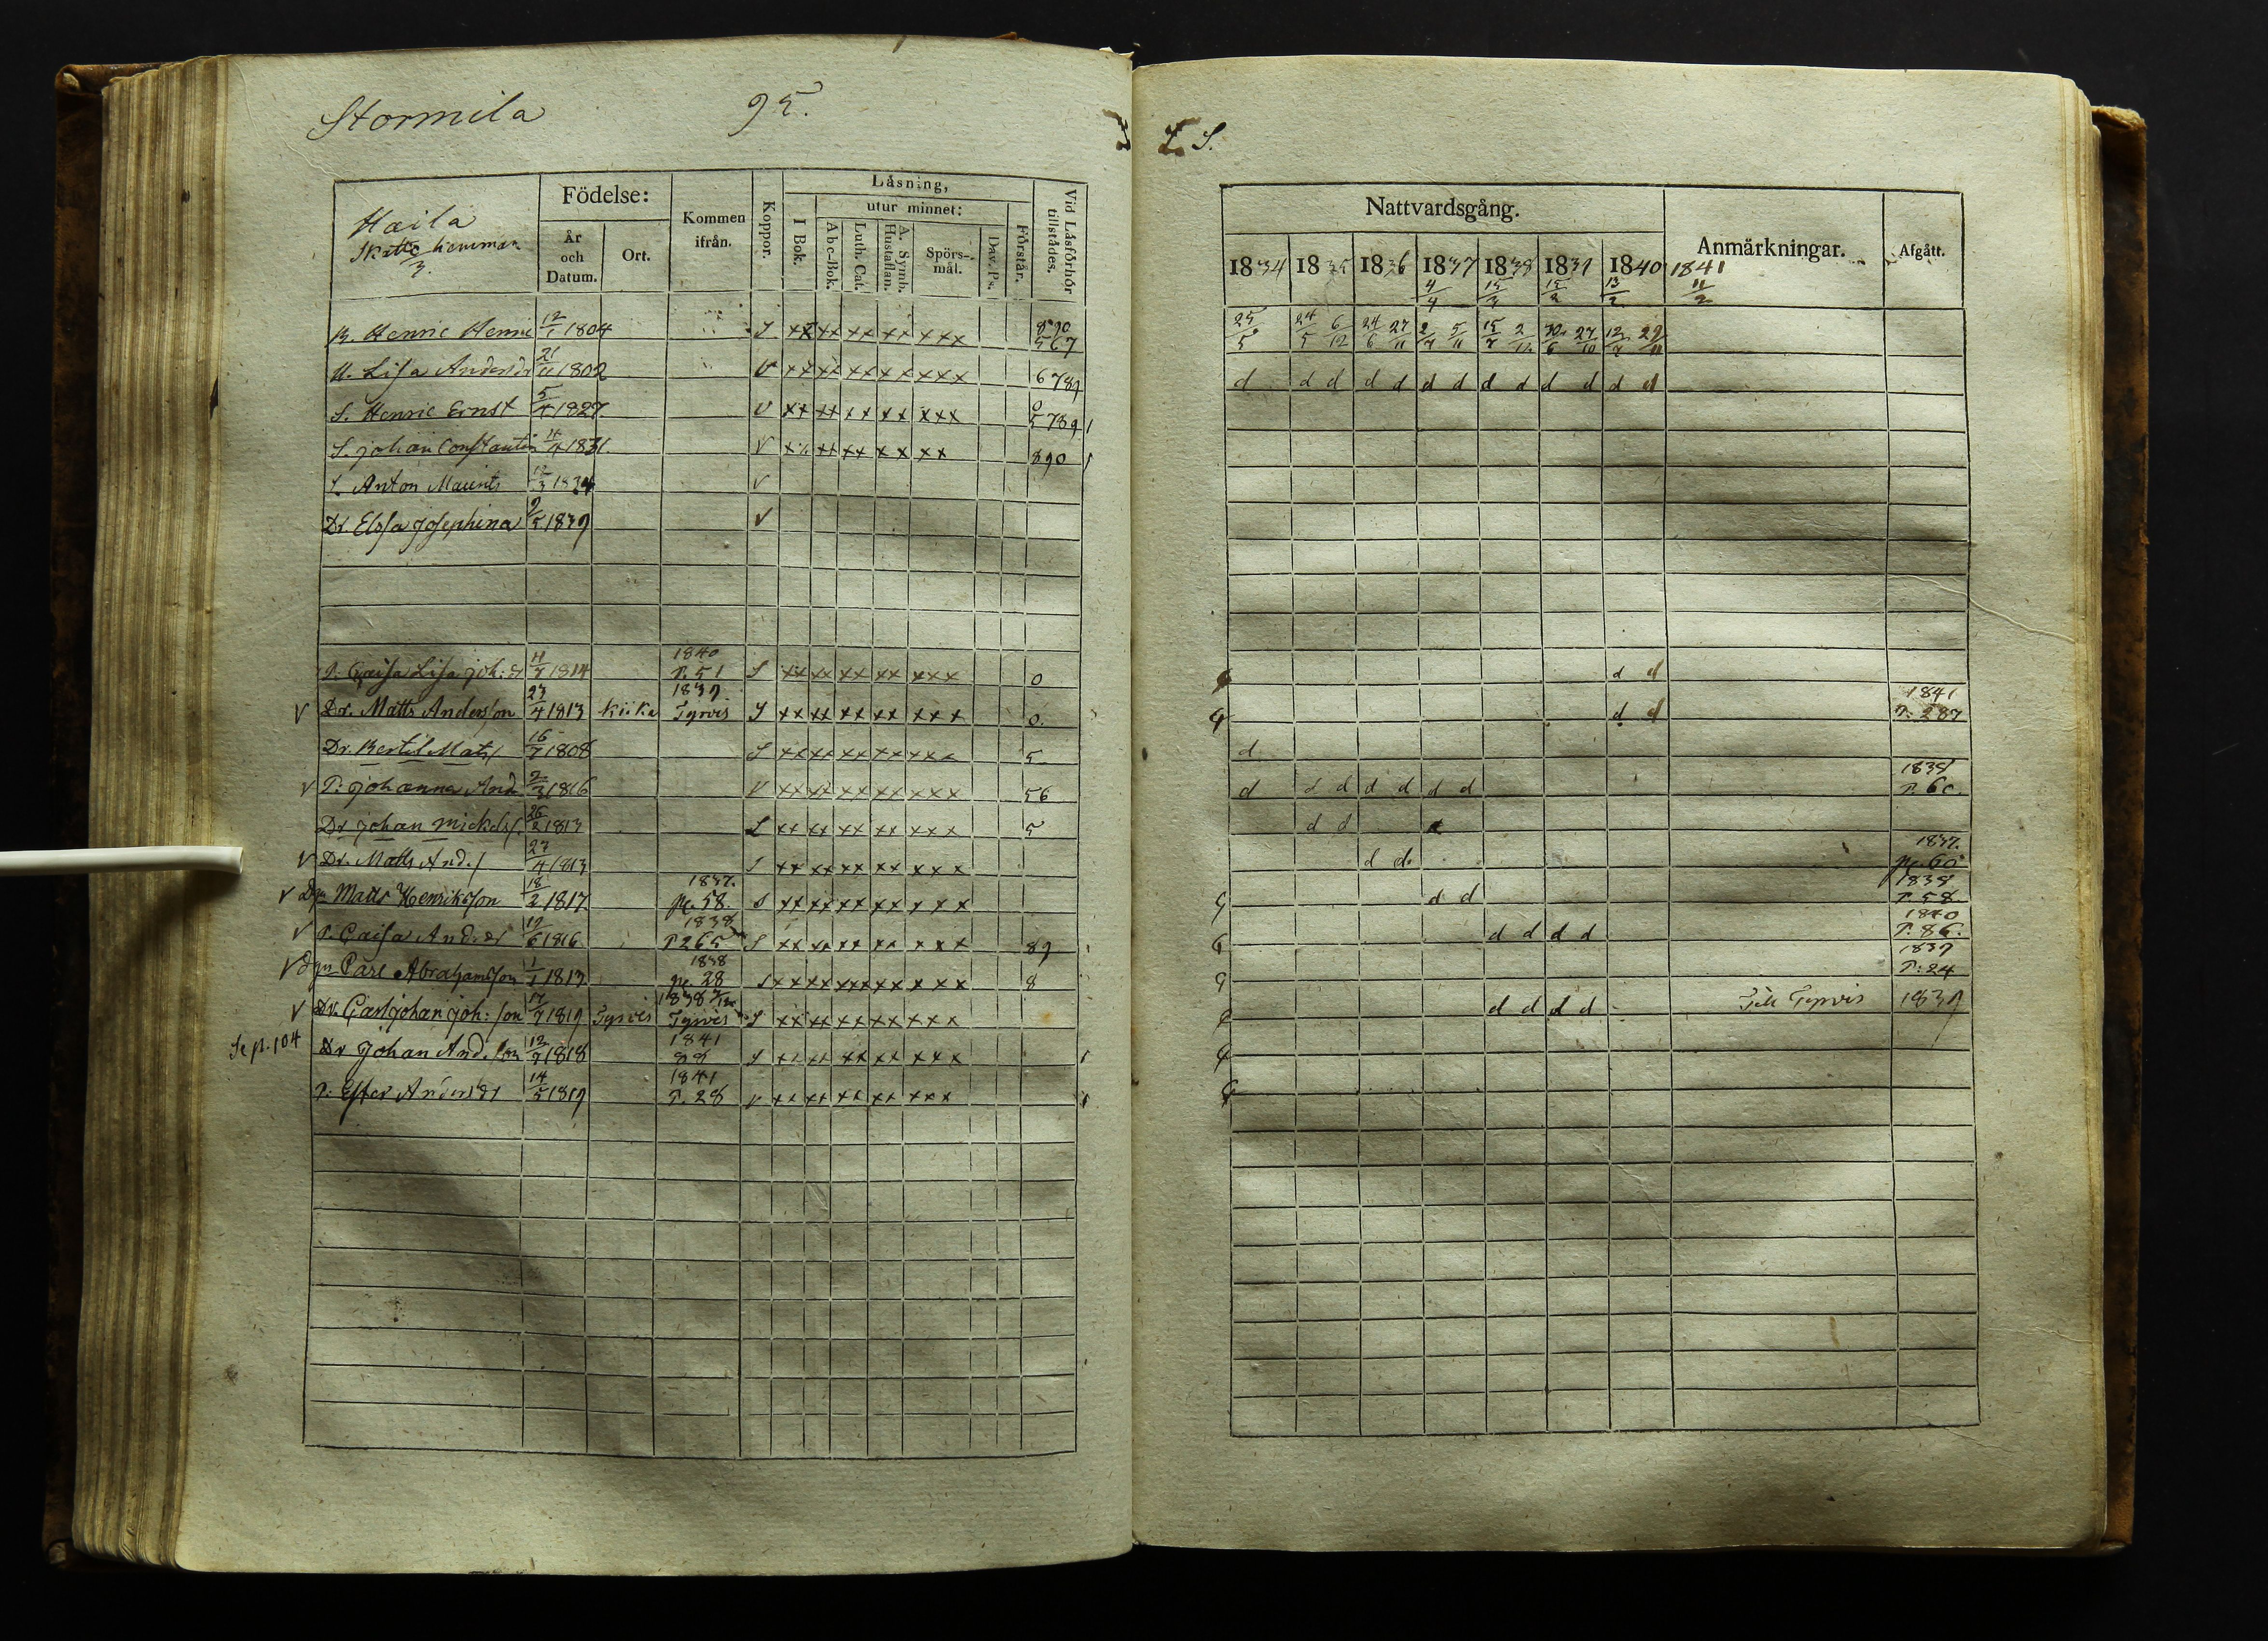 Stormila 95.
Haila
Skatte hemman
3.
Födelse:
År
och
Datum.
Ort.
Kommen
ifrån.
Koppor.
Läsning,
I Bok.
utur minnet:
Abc-Bok.
Luth. Cat.
A. Symb.
Hustaflan.
Spörs-
mål.
Dav. Ps.
Förstår.
Vid Läsförhör
tillstädes.
B. Henric Henric 12/1 1804 S xx xx xx xx xxx 890 567
H. Lisa Andersdr 21/11 1802 V xx xx xx xx xxx 6789
S. Henric Ernst 5/4 1827 V xx xx xx xx xxx 0 5789 1
S. Johan Constantin 11/4 1831. V xx xx xx x x xx 890 1
S. Anton Maurits 12/3 1834 V
Dr. Elssa Josephina 2/5 1839 V
1840
P. Caisa Lisa Joh: dr 11/7 1814 P. 51 S xx xx xx xx xxx 0
1839.
V Dr. Matts Andersson 23/4 1813 Kiika Tyrvis S xx xx xx xx xxx 0.
Dr. Bertil Mats 16/7 1808 S xx xx xx xx xxx 5
V P: Johanna And 2/3 1816 V xx xx xx xx xxx 56
Dr Johan Mickelss. 26/2 1813 L xx xx xx xx xxx 5
V Dr. Matts And. 27/4 1813 S xx xx xx xx xxx
1837.
V Dgr Matts Henriksson 18/2 1817 pg. 58. S xx xx xx xx xxx
1838
V P. Caisa And: dr 12/6 1816 P 265 S xx xx xx xx xxx 89
1838
V Dgr Carl Abrahamsson 1/1 1813 pg. 28 S xx xx xxx xx xxx 8
1838
V Dr. Carl Johan Joh: son 17/7 1819 Tyrvis Tyrvis S xx xx xx xx xxx
1841
Se p. 104 Dr Johan And. son 12/7 1818 88 S xx xx xx xx xxx 1
1841
P. Ester Anders dr 14/5 1819 P. 28 V xx xx xx xx xxx 1
S.
Nattvardsgång.
Anmärkningar.
Afgått.
1834 1835 1836 1837 1838 1839 1840 1841
4/4 15/3 15/2 13/2 11/2
25/5 24/5 6/12 24/6 27/11 2/7 5/11 15/7 2/12 30/6 27/10 12/7 29/11
d d d d d d d d d d d d d
d d
1841
d d P: 287
d
1838
d d d d d d d P. 60.
d d d
1837.
d d. pg. 60
1838
d d P. 58.
1840
d d d d P. 86.
1839
P: 24
d d d d Till Tyrvis 1839